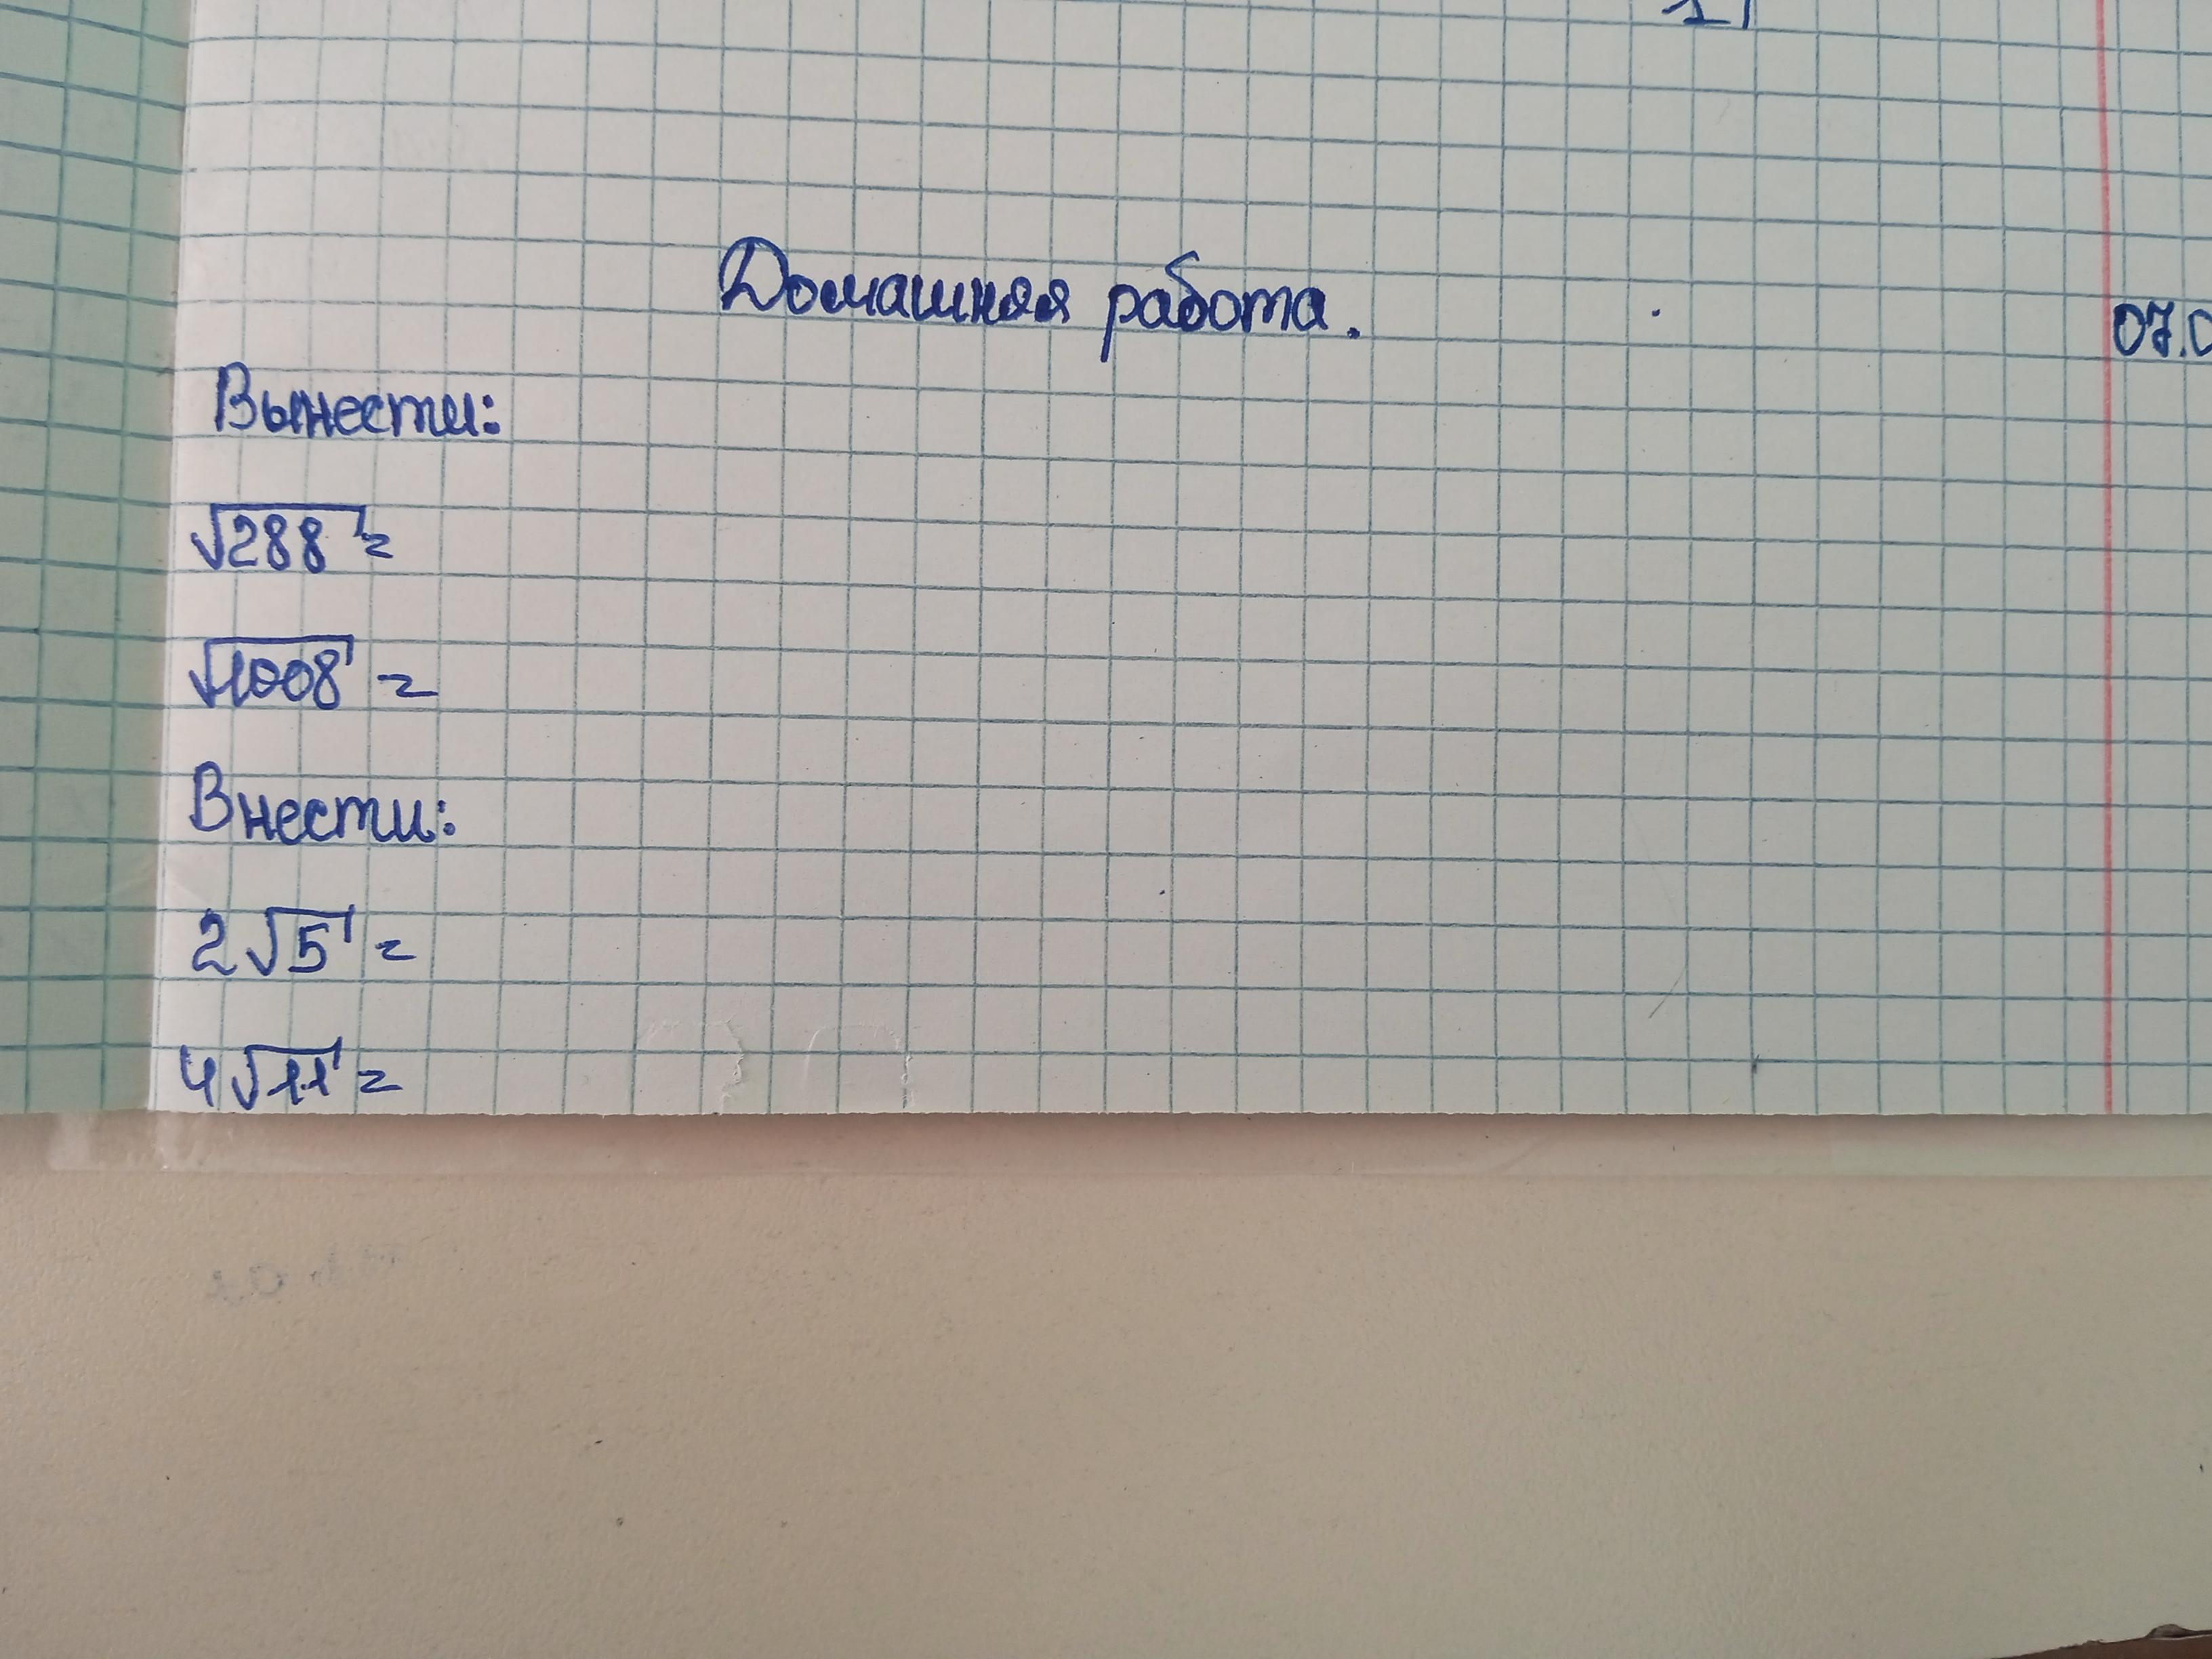 Домашняя работа.
07.0
Вынести:
√288 =
√1008 =
Внести:
2√5 =
4√11 =